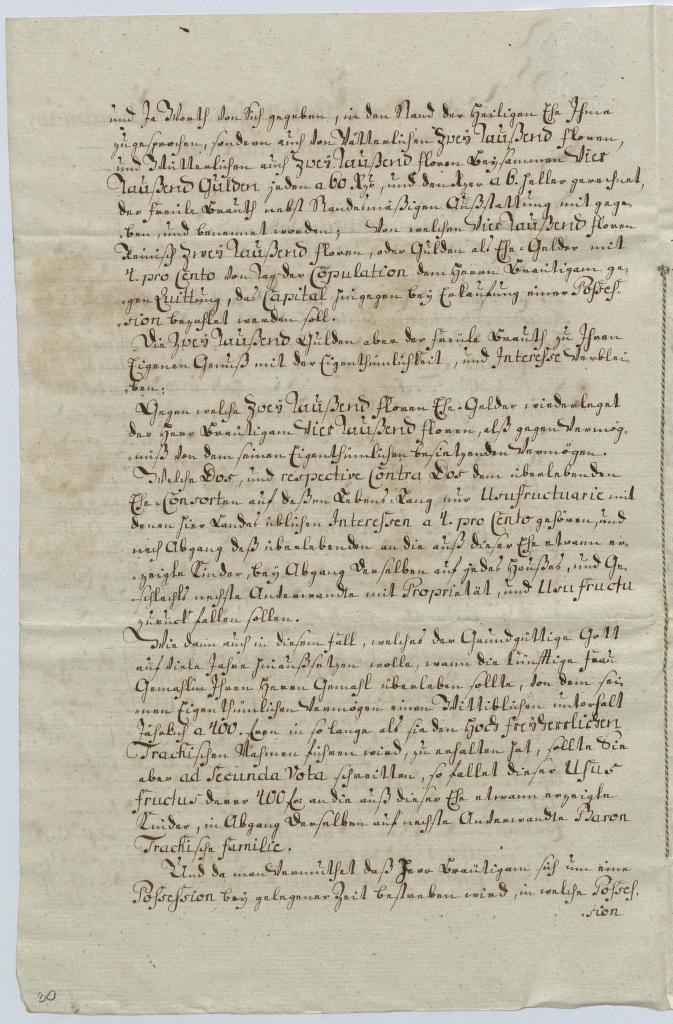 und Ja Worth von Sich gegeben, in den Stand der Heiligen Ehe Ihme
zugesprochen, sondern auch von Vätterlichen Zwey Taußend floren,
und Mütterlichen auch Zwey Taußend floren Beysammen Vier
Taußend Gulden jeden a 60 Kr, und den Kzer a 6. heller gerechnet,
der Freule Brauth nebst Standesmäßigen Außstattung mit gege-
ben, und benennet worden; Von welchen Vier Taußend floren
Reinisch Zwey Taußend floren, oder Gulden als Ehe-Gelder mit
4. pro Cento von Tag der Copulation dem Herrn Bräutigam ge-
gen Quittung, das Capital hingegen bey Erkaufung einer Posses-
sion bezahlet werden soll.
Die Zwey Taußend Gulden aber der Freule Brauth zu Ihren
Eigenen Genuß mit der Eigenthümlichkeit, und Interesse Verblei-
ben;
Gegen welche Zwey Taußend floren Ehe-Gelder wiederleget
der Herr Bräutigam Vier Taußend floren, alß gegen Vermäg-
niß von dem seinen Eigenthümlichen besietzenden Vermögen.
Welche Dos, und respective Contra Dos dem überlebenden
Ehe-Consorten auf deßen Lebens-Lang nur Usufructuarie mit
denen hier Landes üblichen Interessen a 4. pro Cento gehören, und
nach Abgang deß überlebenden an die auß dieser Ehe etwann er-
zeigte Kinder, bey Abgang derselben auf jedes Haußes, und Ge-
schlechts nechste Anverwandte mit Proprietät, und Usufructu
zuruck fallen sollen.
Wie dann auch in diesem fall, welches der Grundgüttige Gott
auf viele Jahre hinaußsetzen wolle, wann die künfftige Frau
Gemahlin Ihren Herrn Gemahl überleben sollte, von dem sei-
nen Eigenthümlichen Vermögen einen Wittiblichen unterhalt
Jährlich a 400. floren in so lange als sie den Hoch freyherrlichen
Trachischen Nahmen führen wird, zu erhalten hat, sollte Sie
aber ad Secunda Vota schreitten, so fallet dieser Usus
fructus derer 400 f. an die auß dieser Ehe etwann erzeigte
Kinder, in Abgang derselben auf nechste Anverwandte Baron
Trachische familie.
Und da man Vermuthet daß Herr Bräutigam sich um eine
Possession bey gelegener Zeit bestreben wird, in welche Posses-
sion
30